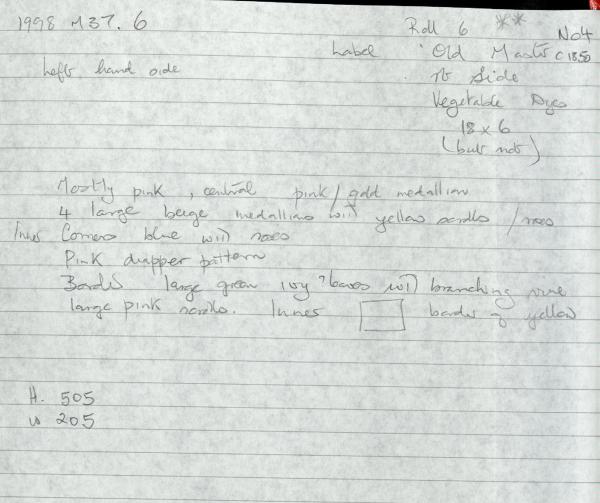 1998 M37.6
Roll 6 ** No4
Label Old Master C1850
Left hand side
Side
Vegetable Dyes
18 x 6
(but not)
Mostly pink, central pink/gold medallion
4 large beige medallions with yellow scrolls / roses
Inner Corners blue with roses
Pink diapper pattern
Border large green ivy ? leaves with branching vine
large pink scrolls. Inner border of yellow
H. 505
W 205